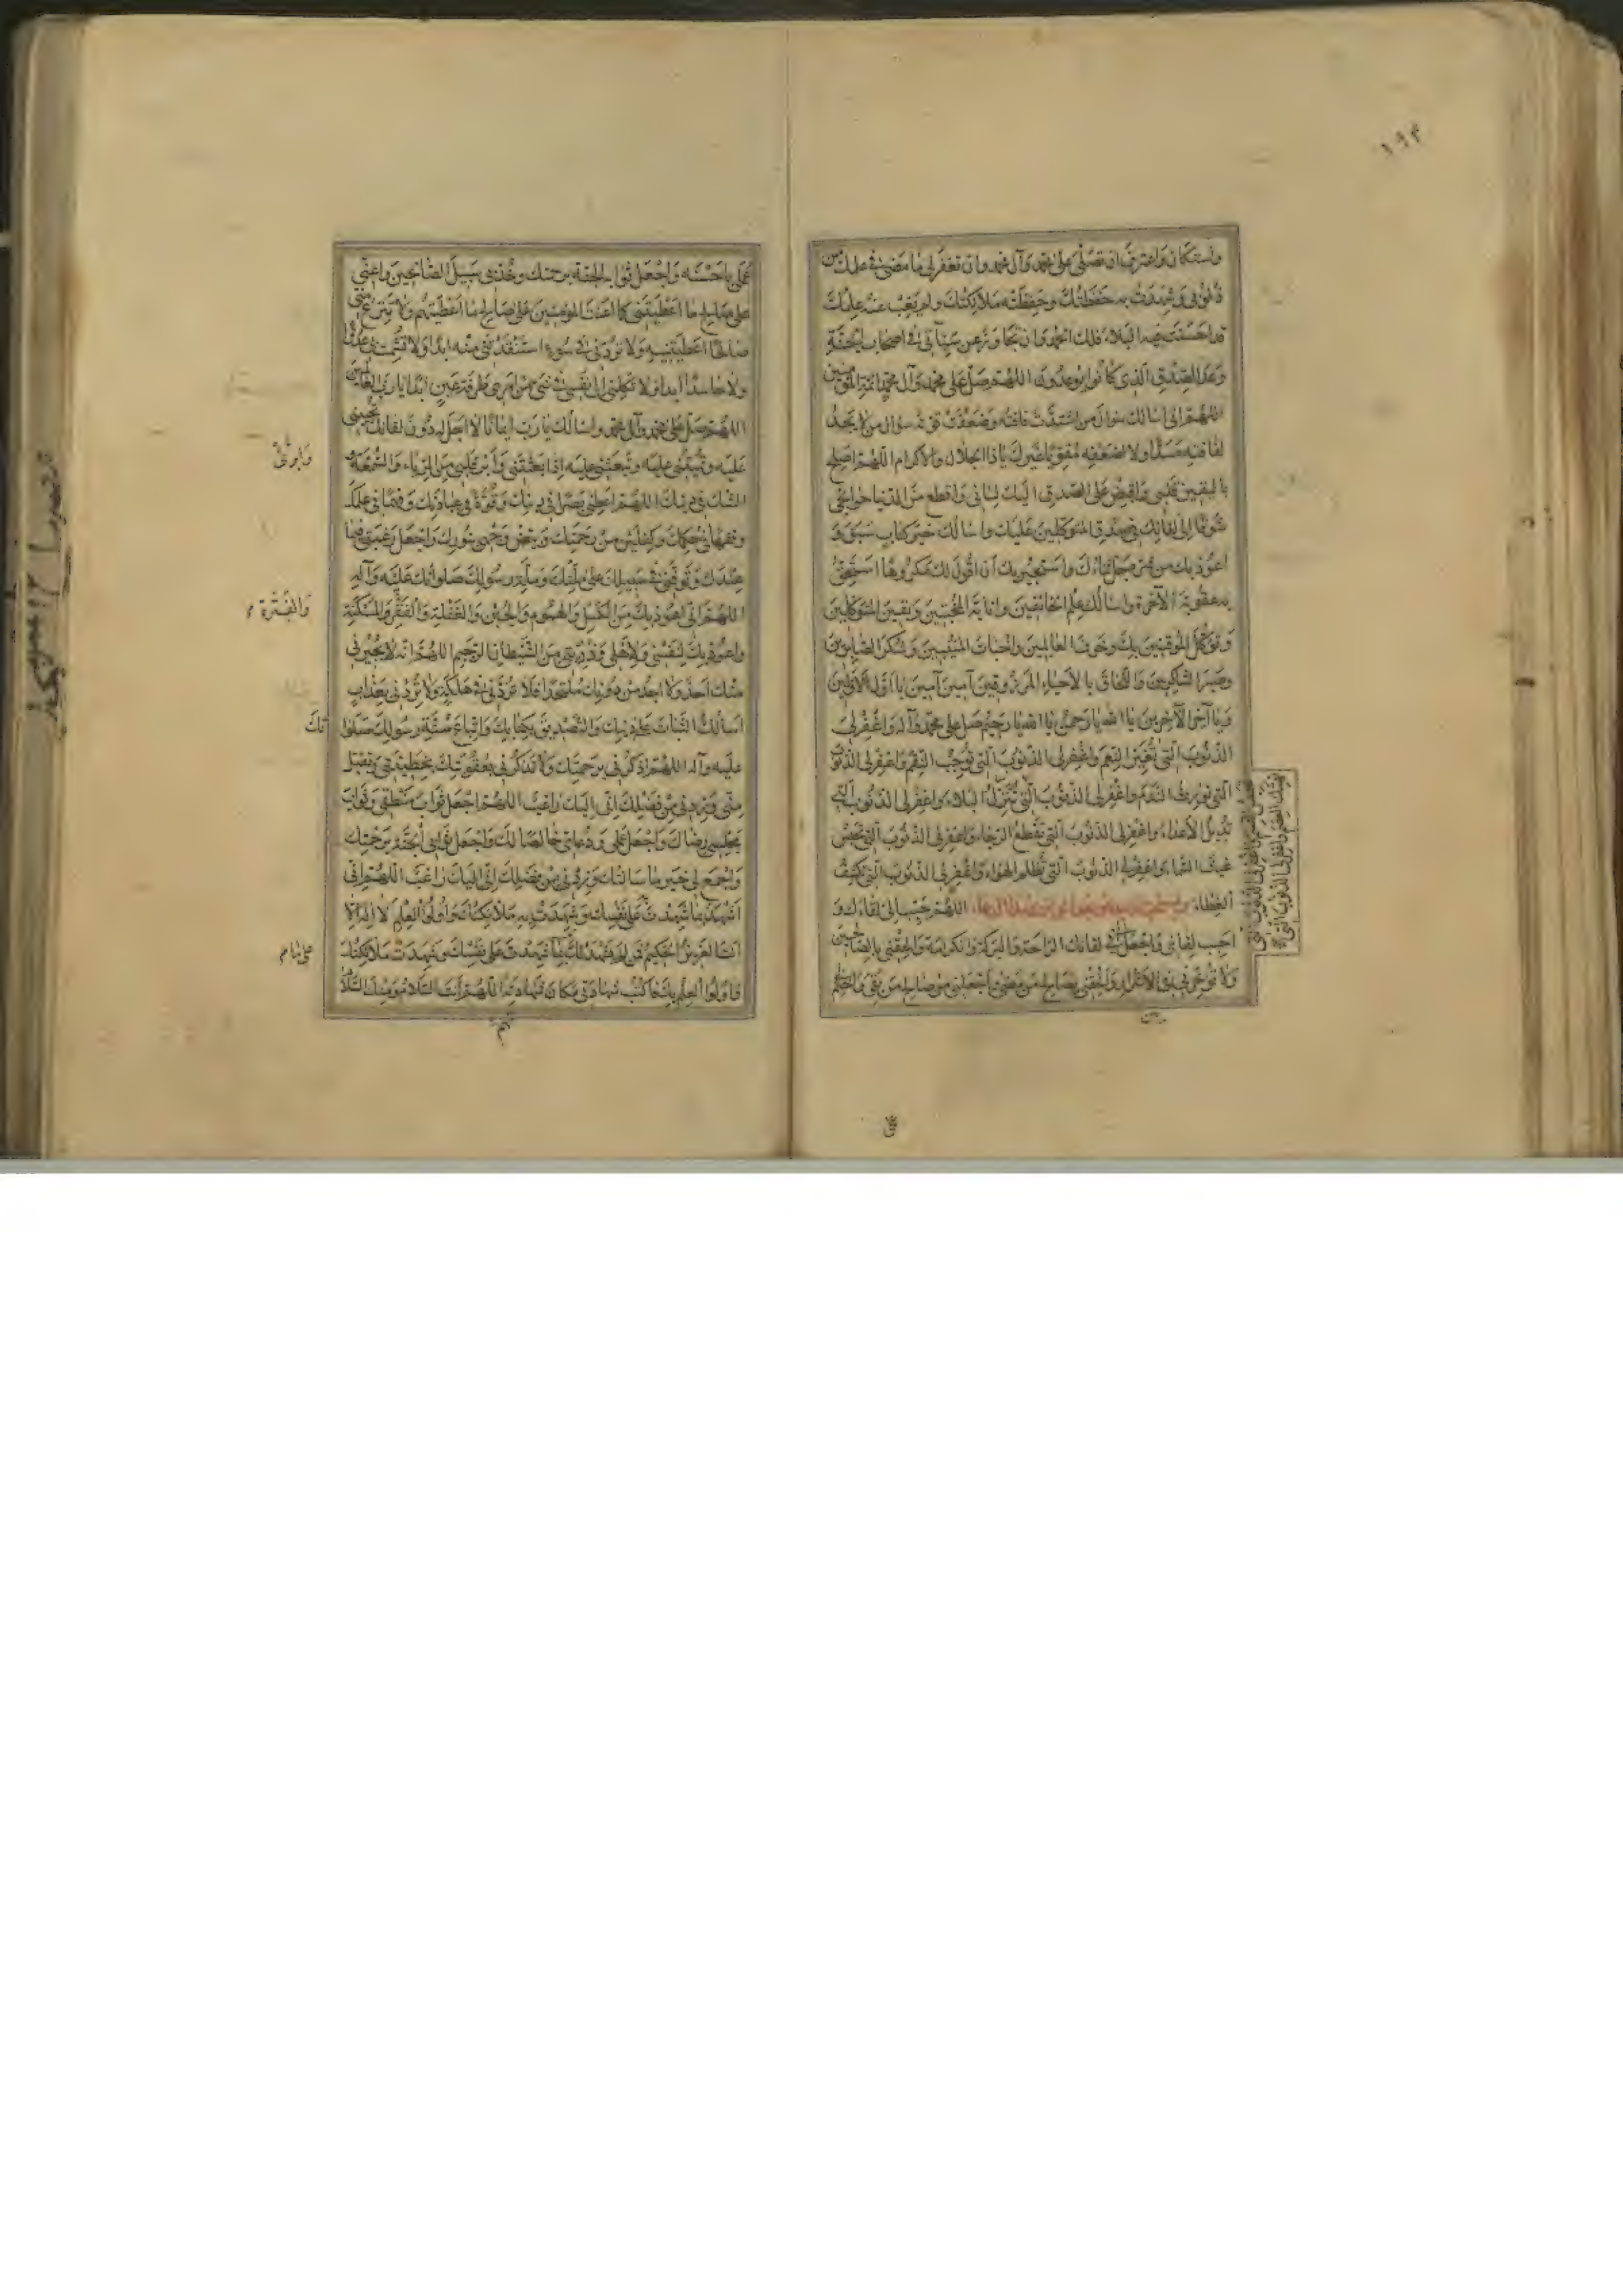 ۱۹۴
واستكان واعترف ان تصلى على محمد وآل محمد وان تغفر لى ما مضى فى علمك من
ذنوبى وشهدت به حفظتك وحفظته ملائكتك ولم يغب عنه علمك
قد احسنت فيه البلاء فلك الحمد وان تجاوز عن سيئاتى فى اصحاب الجنة
وعد الصدق الذى كانوا يوعدون اللهم صل على محمد وآل محمد ائمة المؤمنين
اللهم انى اسالك سؤال من اشتدت فاقته وضعفت قوته سؤال من لا يجد
لفاقته مسدا ولا لضعفه مقويا غيرك ياذا الجلال والاكرام اللهم اصلح
باليقين قلبى واقبض على الصدق اليك لسانى واقطع من الدنيا حوائجى
شوقا إلى لقائك فى صدق المتوكلين عليك واسالك خير كتاب سبق و
اعوذ بك من شر واستجير بك أن اقول لك مكروها استحق
به عقوبة الآخرة واسالك علم الخائفين وانابة المخبتين ويقين المتوكلين
وتوكل الموقنين بك وخوف العالمين واخبات المنيبين وشكر الصابرين
وصبر الشاكرين واللحاق بالاحياء المرزوقين آمين آمين يا اول الاولين
ويا آخر الآخرين يا الله يا رحمن يا الله يا رحيم صل على محمد وآله واغفر لى
الذنوب التى تغير النعم واغفر لى الذنوب التى توجب النقم واغفر لى الذنوب
التى تورث الندم واغفر لى الذنوب التى تنزل البلاء واغفر لى الذنوب التى
تديل الاعداء واغفر لى الذنوب التى تقطع الرجاء واغفر لى الذنوب التى تحبس
غيث السماء واغفر لى الذنوب التى تظلم الهواء واغفر لى الذنوب التى تكشف
الغطاء اللهم حبب الى لقاءك و
احبب لقائى واجعل لى فى لقائك الراحة والبركة والكرامة والحقنى بالصالحين
ولا تؤخرنى فى الاشرار والحقنى بصالح من مضى واجعلنى من صالح من بقى واختم
عملى باحسنه واجعل ثوابه الجنة برحمتك وخذ بى سبيل الصالحين واعنى
على صالح ما اعطيتنى كما اعنت المؤمنين على صالح ما اعطيتهم ولا تنزع منى
صالحا اعطيتنيه ولا تردنى فى سوء استنقذتنى منه ابدا ولا تشمت بى عدوا
ولا حاسدا ابدا ولا تكلنى الى نفسى فى شىء من امرى طرفة عين ابدا يا رب العالمين
اللهم صل على محمد وآل محمد واسالك يا رب ايمانا لا اجل له دون لقائك تحيينى
عليه وتميتنى عليه وتبعثنى عليه اذا بعثتنى وأبرئ قلبى من الرياء والسمعة و
وابرئ
الشك فى دينك اللهم اعطنى بصرا فى دينك وقوة فى عبادتك وفهما فى علمك
وفقها فى حكمك وكفلين من رحمتك وبيض وجهى بنورك واجعل رغبتى فيما
عندك وتوفنى فى سبيلك على ملتك وملة رسولك صلواتك عليه وآله
اللهم انى اعوذ بك من الكسل والهموم والجبن والغفلة والفقر والمسكنة
والفترة
واعوذ بك لنفسى ولاهلى وذريتى من الشيطان الرجيم اللهم انه لا يجيرنى
منك احد ولا اجد من دونك ملتحدا فلا تردنى فى هلكة ولا تردنى بعذاب
اسالك الثبات على دينك والتصديق بكتابك واتباع سنة رسولك صلوا
تك
عليه وآله اللهم اذكرنى برحمتك ولا تذكرنى بعقوبتك بخطيئتى وتقبل
منى وزدنى من فضلك انى اليك راغب اللهم اجعل ثواب منطقى وثواب
مجلسى رضاك واجعل عملى ودعائى خالصا لك واجعل ثوابى الجنة برحمتك
واجمع لى خير ما سالتك وزدنى من فضلك انى اليك راغب اللهم انى
اشهد بما شهدت على نفسك وشهدت به ملائكتك واولوا العلم لا اله الا
انت العزيز الحكيم فمن لم يشهد لك بما شهدت على نفسك وشهدت ملائكتك
واولوا العلم بك فاكتب شهادتى مكان شهادته اللهم أنت السلام ومنك السلام